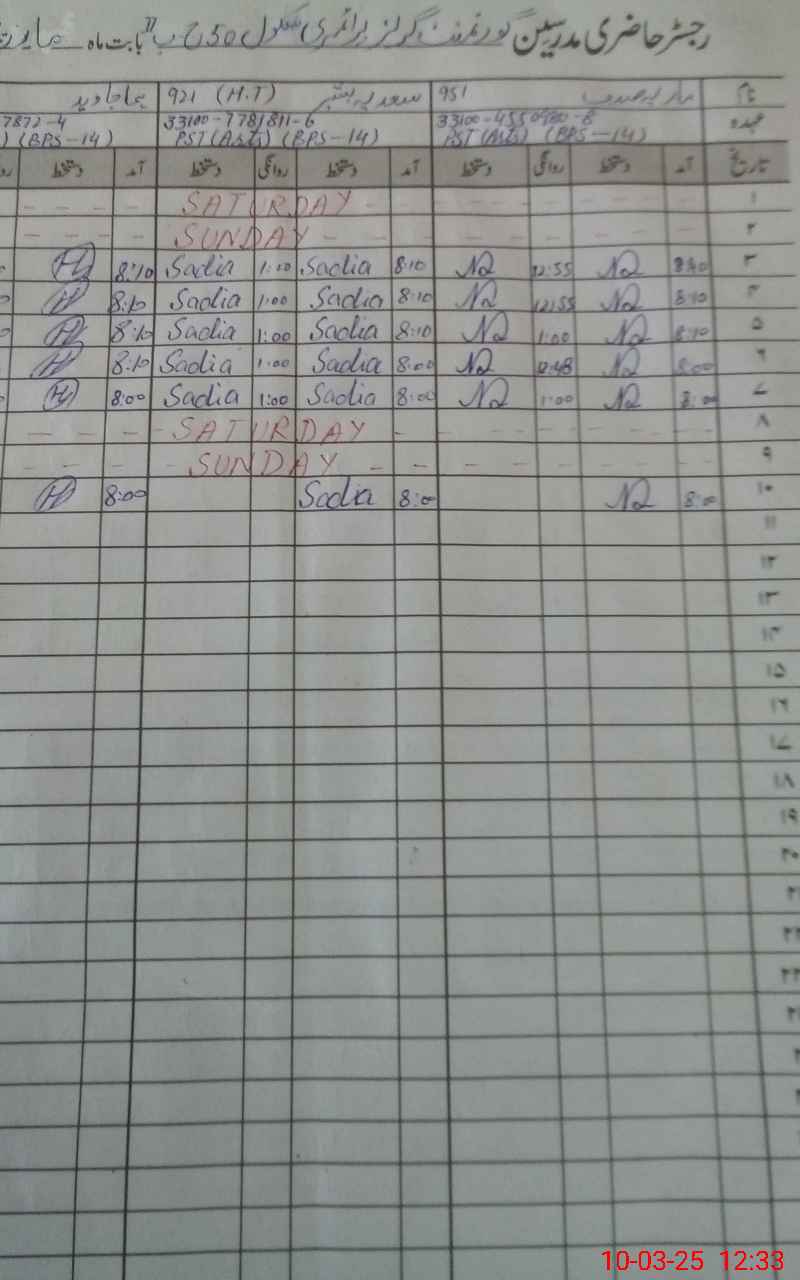 رجسٹر حاضری مدرسین گورنمنٹ گرلز پرائمری سکول 50 ج ب بابت ماہ
نام 951 سعدیہ بشیر 921 (H.T) جاوید
عہدہ 33100-4550980-8 33100-7781811-6 7872-4
PST (Arts) (BPS-14) PST (Arts) (BPS-14) ) (BPS-14)
تاریخ آمد دستخط روانگی دستخط آمد دستخط روانگی دستخط آمد دستخط
۱ SATURDAY
۲ SUNDAY
۳ 8:10 12:55 8:10 Sadia 1:10 Sadia 8:10 H
۴ 8:10 12:55 8:10 Sadia 1:00 Sadia 8:10 H
۵ 8:10 1:00 8:10 Sadia 1:00 Sadia 8:10 H
۶ 8:00 12:48 8:00 Sadia 1:00 Sadia 8:10 H
۷ 8:00 1:00 8:00 Sadia 1:00 Sadia 8:00 H
۸ SATURDAY
۹ SUNDAY
۱۰ 8:00 8:00 Sadia 8:00 H
۱۱
۱۲
۱۳
۱۴
۱۵
۱۶
۱۷
۱۸
۱۹
۲۰
10-03-25 12:33